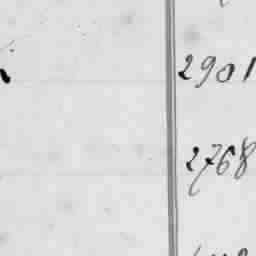 2901
2768